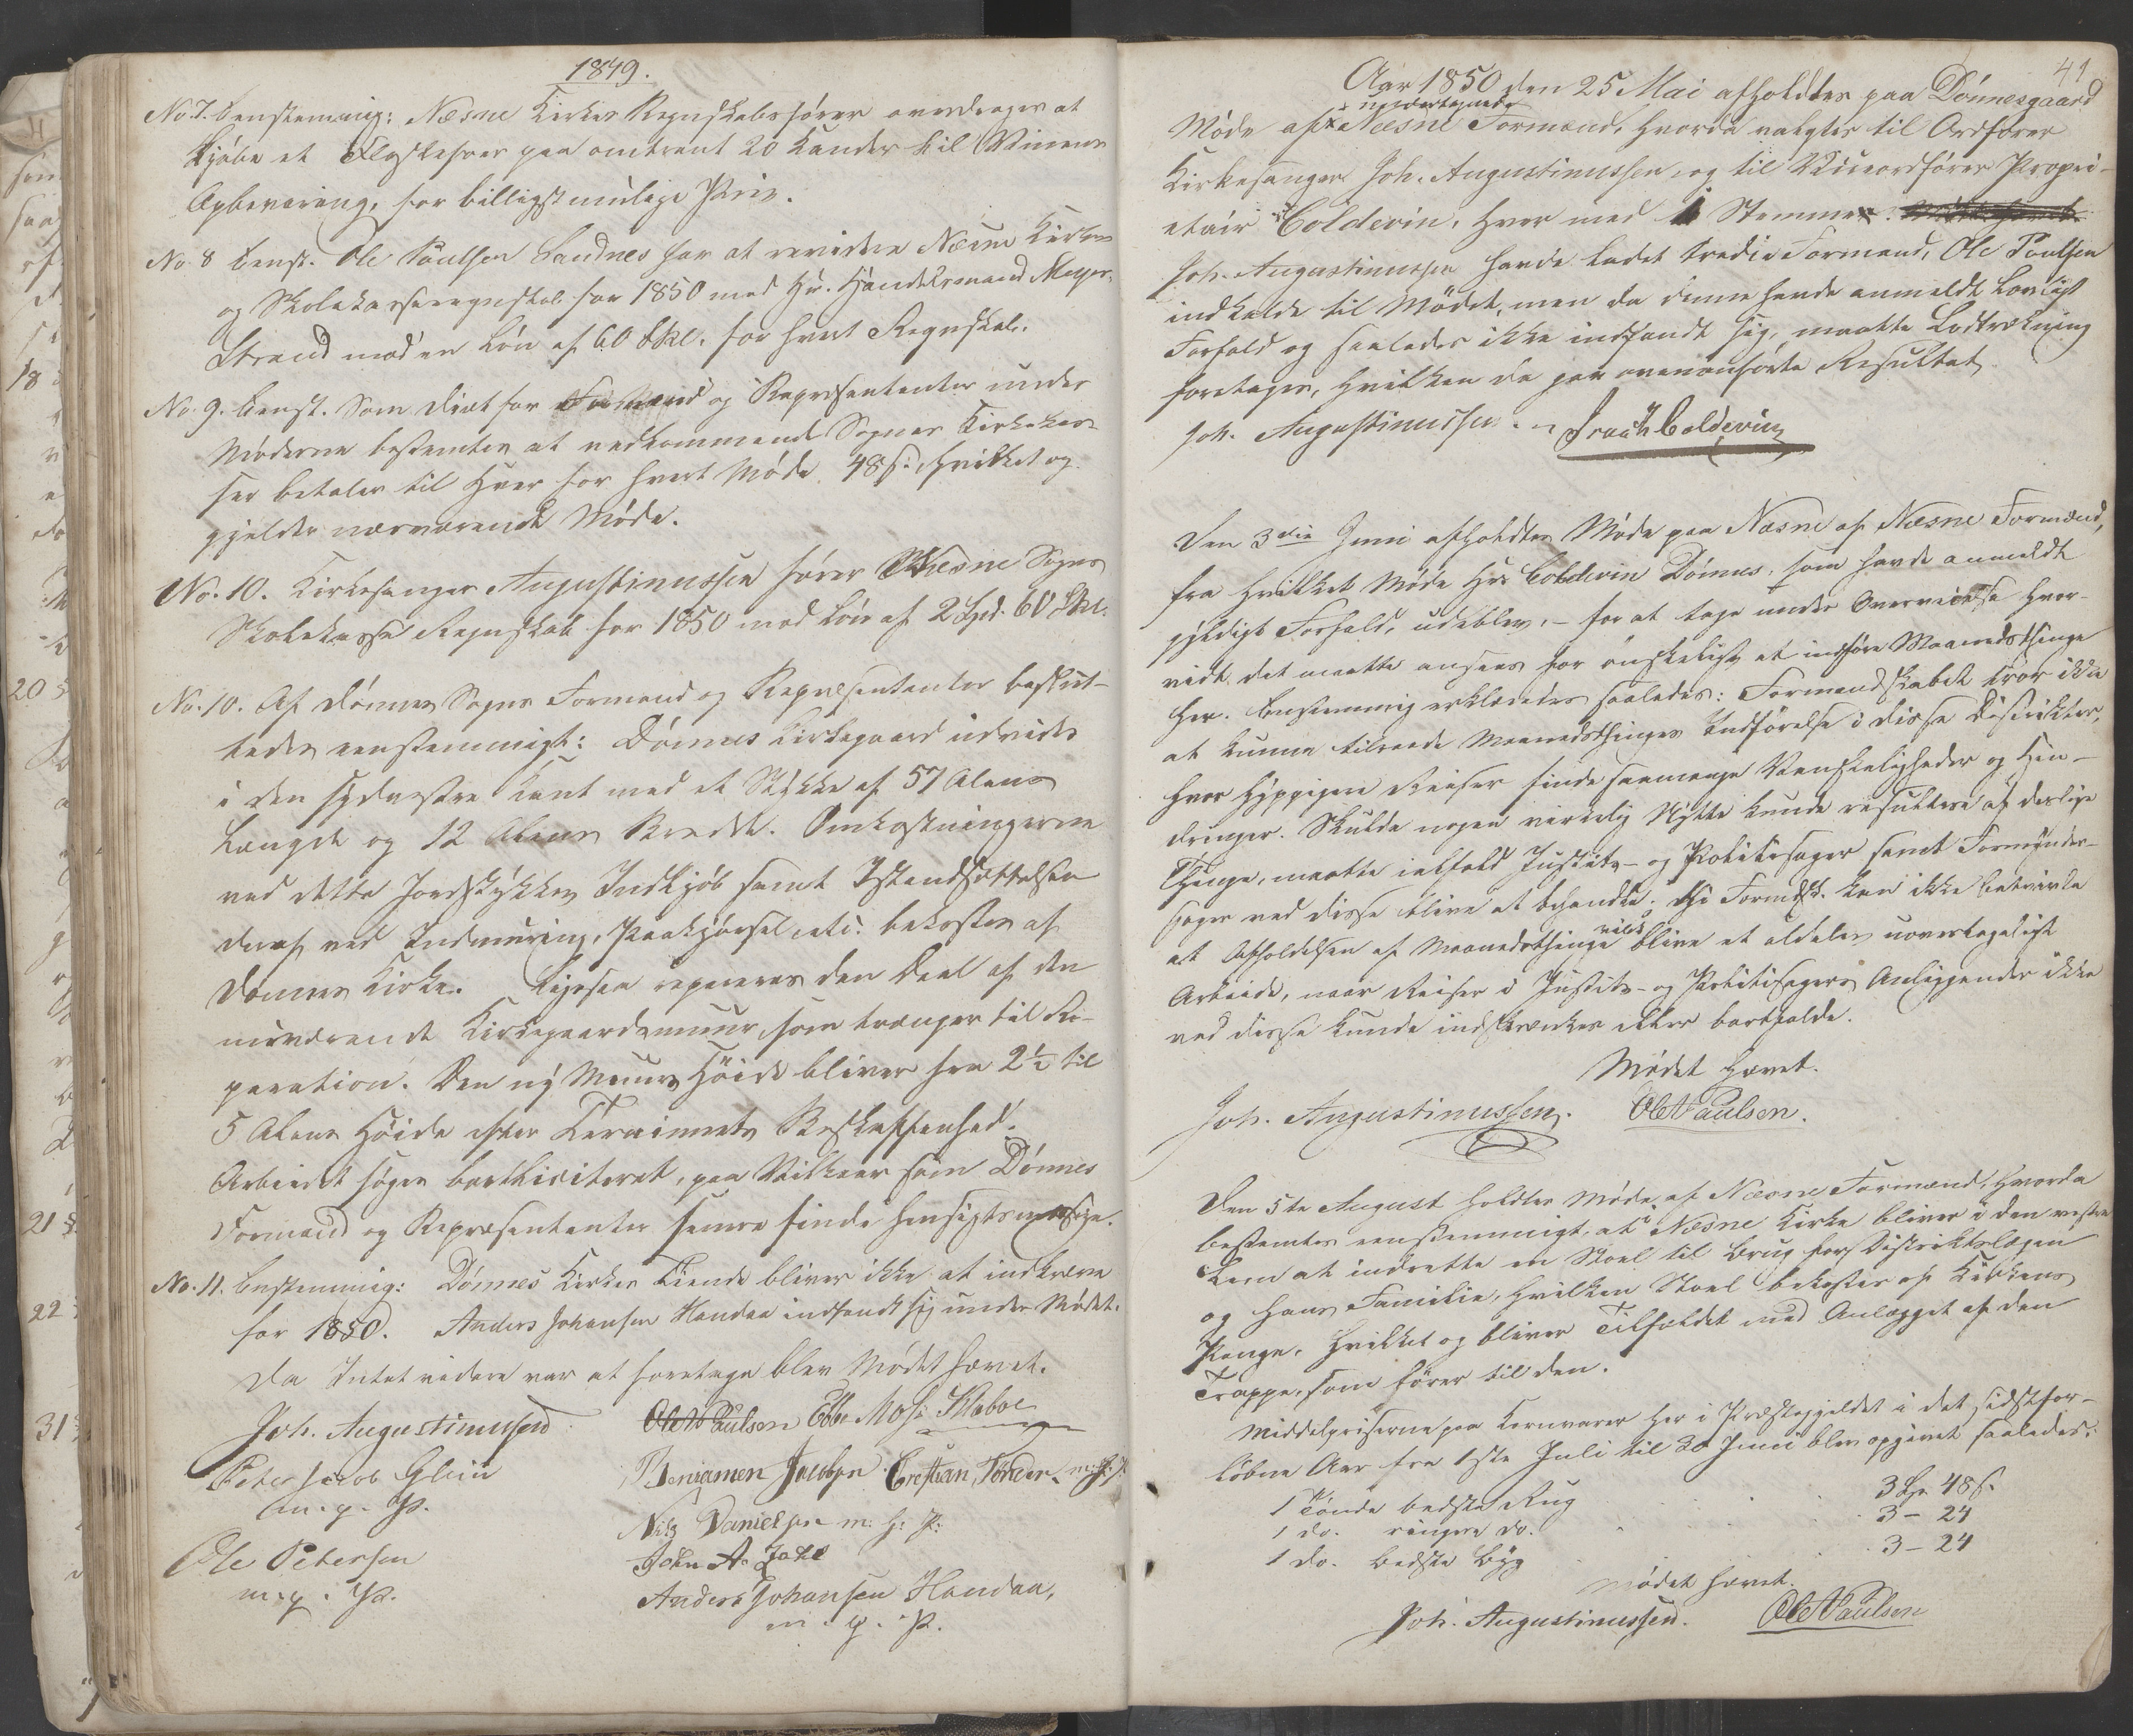 1849.
No 7. Eenstemmig: Næsne Kirkes Regnskabsfører overdrages at
kjøbe et Flaskefoer paa omtrent 20 Kander til Vinens
Opbevaring, for billigst mulige Priis.
No 8 Eenst. Ole Paulsen Sandnes har at revidere Næsne Kirkes
og Skolekasseregnskab for 1850 med Hr. Handelsmand Meyer
Strand mod en Løn af 60 Skl. for hvert Regnskab.
No. 9. Eenst. Som Diæt for Formænd og Repræsentanter under
Møderne bestemtes at vedkommende Sognes Kirkekas-
ser betaler til Hver for hvert Møde 48 s., hvilket og
gjelder nærværende Møde.
No. 10. Kirkesanger Augustinussen fører Næsne Sogns
Skolekasse Regnskab for 1850 mod Løn af 2 Spd. 60 Skl.
No. 10. Af Dønnes Sogns Formænd og Repræsentanter beslut-
tedes eenstemmigt: Dønnes Kirkegaard udvides
i den sydvestre Kant med et Stykke af 57 Alens
Længde og 12 Alens Bredde. Omkostningerne
ved dette Jordstykkes Indkjøb samt Istandsættelsen
deraf ved Indmuring, Paakjørsel etc. bekostes af
Dønnes Kirke. Ligesaa repareres den Deel af den
nuværende Kirkegaardsmuur, som trænger til Re-
paration. Den ny Muurs Høide bliver fra 2½ til
5 Alens Høide efter Terrainets Beskaffenhed.
Arbeidet søges bortliciteret, paa Vilkaar som Dønnes
Formænd og Repræsentanter senere finde hensigtsmæssige.
No. 11. Eenstemmig: Dønnes Kirkes Tiende bliver ikke at indkræve
for 1850. Anders Johansen Handaa indfandt sig under Mødet.
Da Intet videre var at foretage blev Mødet hævet.
Joh. Augustinussen Ole Paulsen Ebbe Mos: Klæboe
Peter Jacob Glein Benjamen Jacobsen Crestian Tønder m. f. P.
m. p. P. Nils Danielsen m: h: P:
Ole Petersen John A. Zahl
m. p. P. Anders Johansen Handaa,
m. p. P.
41
Aar 1850 den 25 Mai afholdtes paa Dønnesgaard
undertegnede
Møde af Næsne Formænd, hvorda valgtes til Ordfører
Kirkesanger Joh. Augustinussen, og til Viceordfører Propri-
etair Coldevin, hver med 1 Stemme.
Joh. Augustinussen havde ladet tredie Formand, Ole Paulsen
indkalde til Mødet, men da denne havde anmeldt lovligt
Forfald og saaledes ikke indfandt sig, maatte Lodtrækning
foretages, hvilken da gav ovenanførte Resultat.
Joh. Augustinussen. Isach Coldevin
Den 3die Juni afholdtes Møde paa Næsne af Næsne Formænd,
fra hvilket Møde Hr Coldevin Dønnes, som havde anmeldt
gyldigt Forfald, udeblev, – for at tage under Overveielse hvor-
vidt det maatte ansees for ønskeligt at indføre Maanedsthinge
her. Enstemmig erklæredes saaledes: Formandskabet troer ikke
at kunne tilraade Maanedsthinges Indførelse i disse Distrikter,
hvor hyppigere Reiser finde saamange Vanskeligheder og Hin-
dringer. Skulde nogen virkelig Nytte kunde resultere af deslige
Thinge, maatte ialfald Justits- og Politisager samt Formynder-
sager ved disse blive at behandle. Thi Formdsk. kan ikke betvivle
vilde
at Afholdelsen af Maanedsthinge blive et aldeles uoverkageligt
Arbeide, naar Reiser i Justits- og Politisagers Anliggender ikke
ved disse kunde indskrænkes eller bortfalde.
Mødet hævet.
Joh. Augustinussen. Ole Paulsen.
Den 5te August holdtes Møde af Næsne Formænd, hvorda
bestemtes eenstemmigt, at i Næsne Kirke bliver i den vestre
Leem at indrette en Stoel til Brug for Distriktslægen
og hans Familie, hvilken Stoel bekostes af Kirkens
Penge, hvilket og bliver Tilfældet med Anlægget af den
Trappe, som fører til den.
Middelpriserne paa Kornvarer her i Præstegjeldet i det sidstfor-
løbne Aar fra 1ste Juli til 30 Juni blev opgivet saaledes:
1 Tønde bedste Rug 3 Sp. 48 s.
1 do. ringere do. 3 – 24
1 do. bedste Byg 3 – 24
Mødet hævet.
Joh. Augustinussen. Ole Paulsen